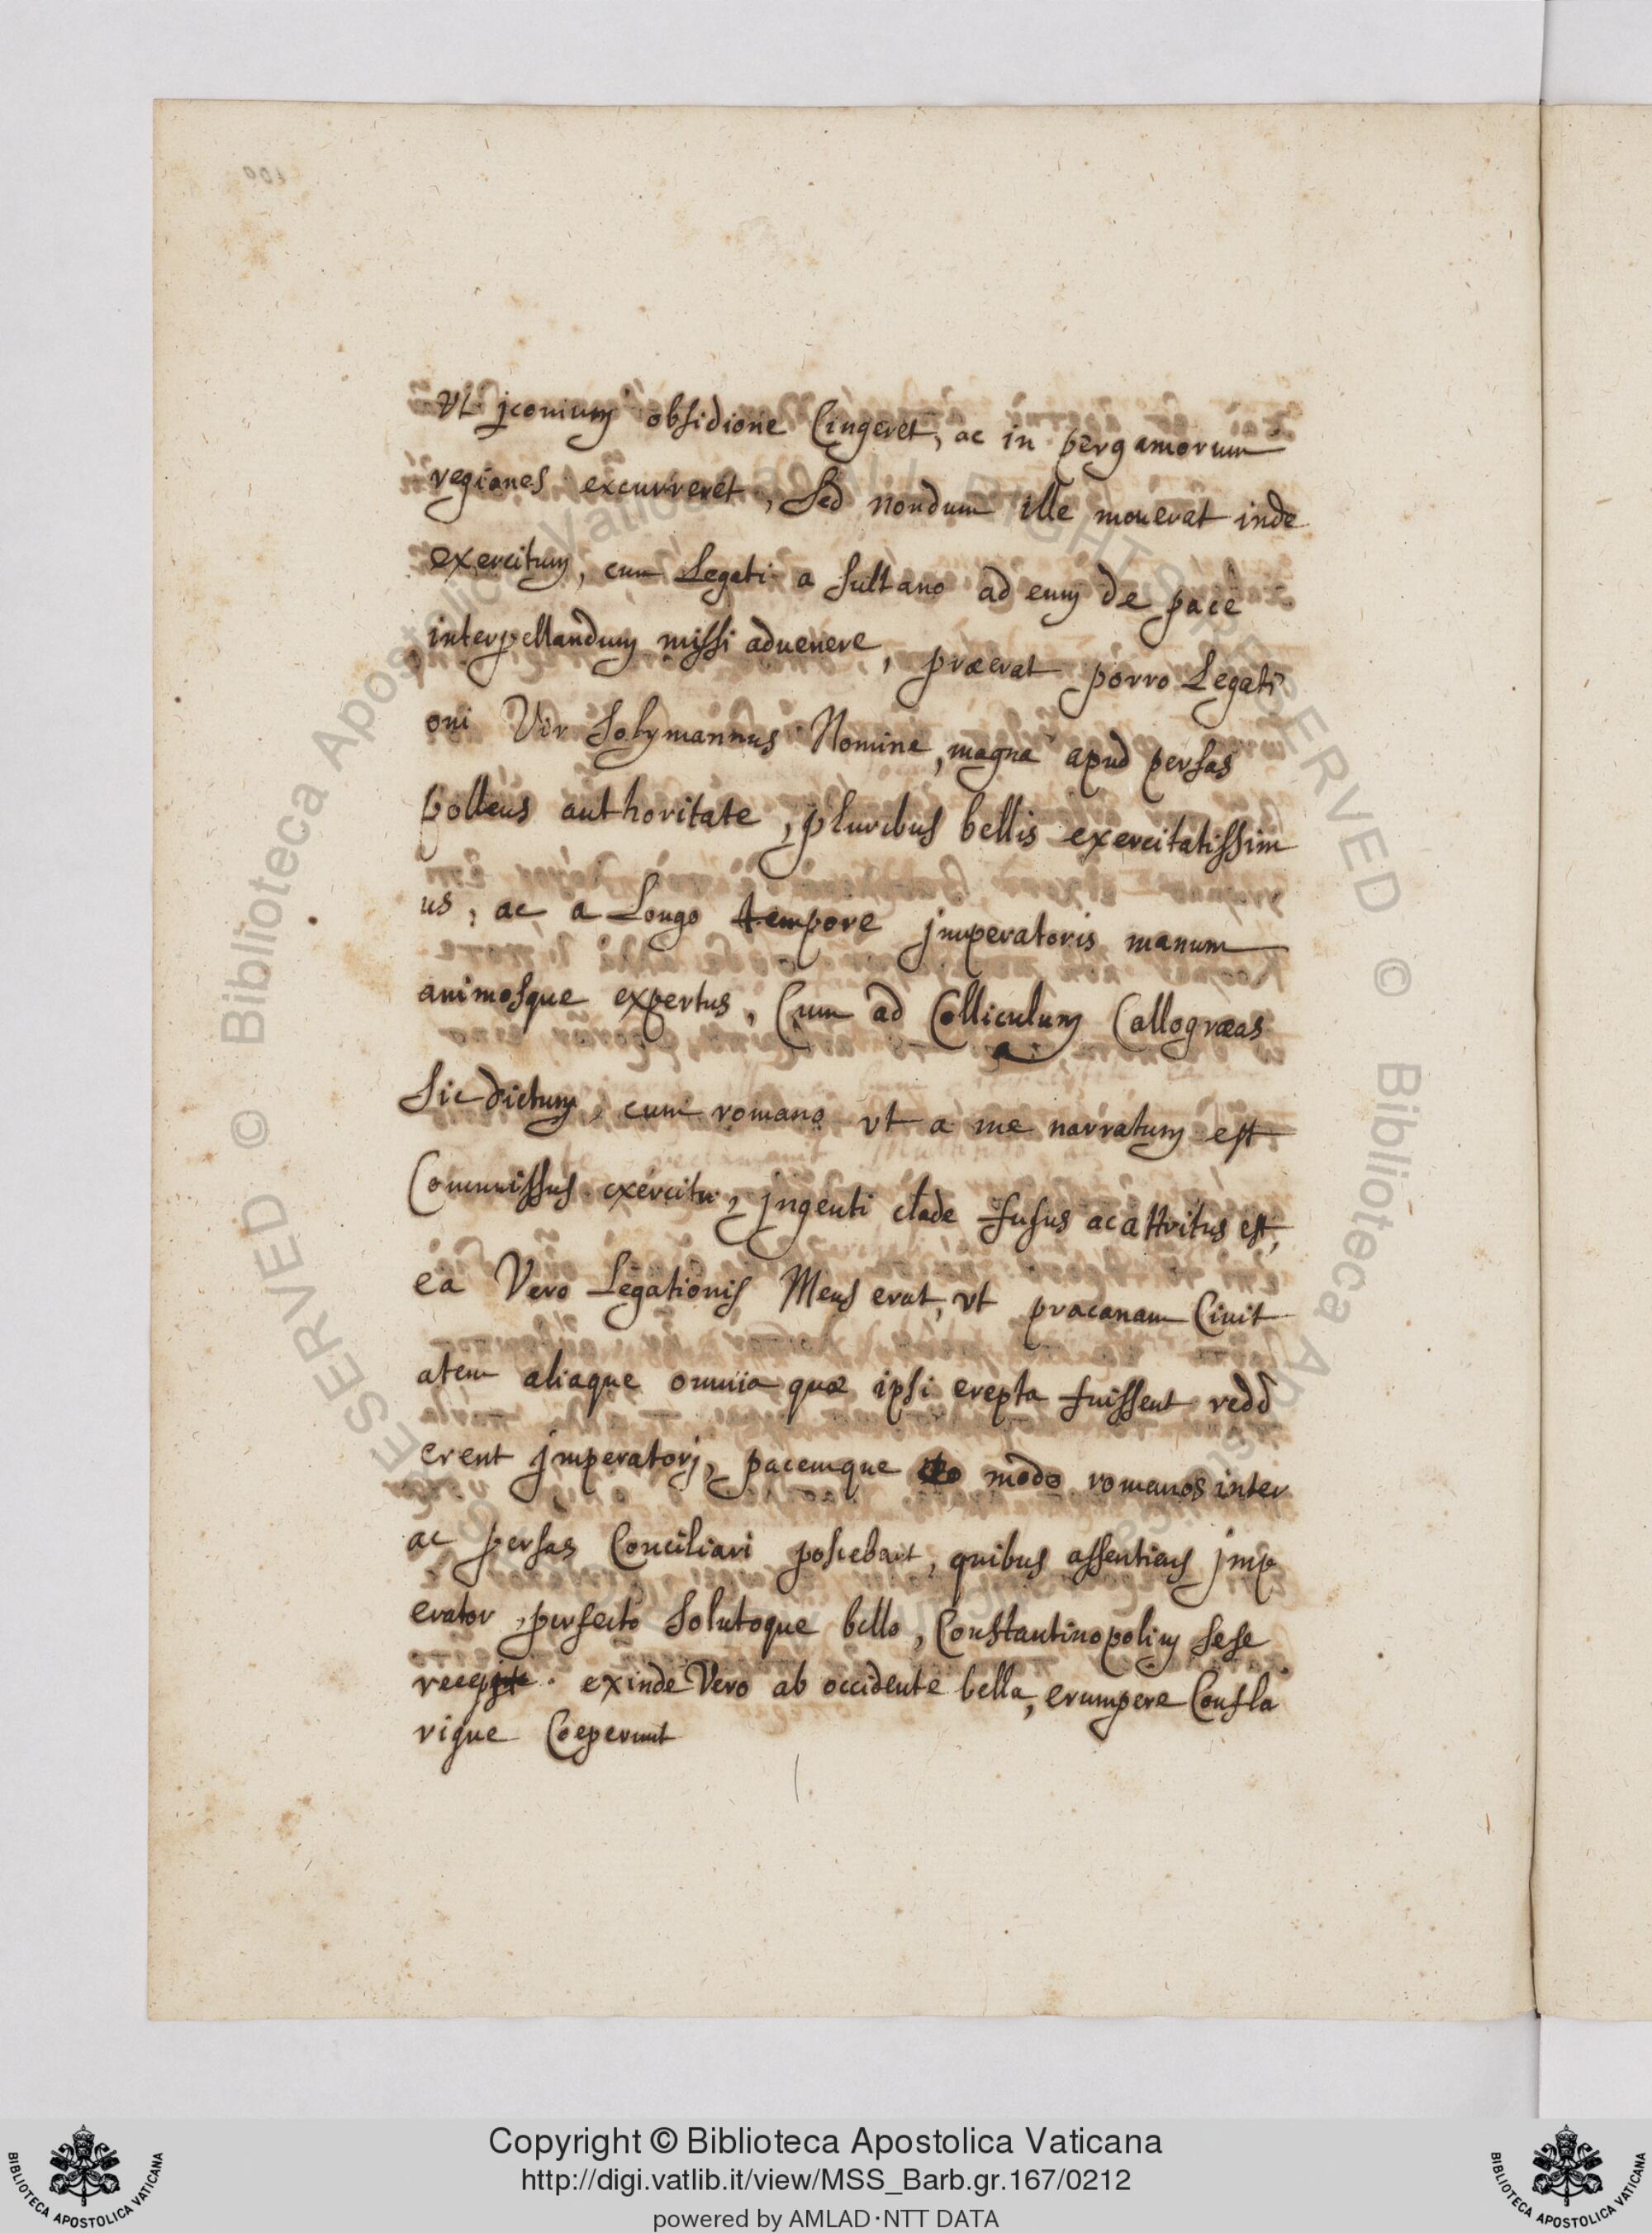 Vt jconium obsidione Cingeret, ac in pergamorum
regiones excurreret, Sed nondum ille mouerat inde
exercitum, cum Legati a sultano ad eum de pace
interpellandum missi aduenere, præerat porro Legati
oni Vir Solymannus Nomine, magna apud persas
pollens authoritate, pluribus bellis exercitatissim
us, ac a Longo tempore jmperatoris manum
animosque expertus, Cum ad Colliculum Callogræas
Sic dictum, cum romano vt a me narratum est
Commissus exercitu, jngenti clade fusus ac attritus est,
ea Vero Legationis Mens erat, vt pracanam Ciuit
atem aliaque omnia quæ ipsi erepta fuissent redd
erent jmperatorj, pacemque modo romanos inter
ac persas Conciliari poscebant, quibus assentiens jmp
erator, perfecto Solutoque bello, Constantinopolim sese
recepit. exinde Vero ab occidente bella, erumpere Confla
rique Coeperunt
100
RESERVED © Biblioteca Apostolica Vaticana
Copyright © Biblioteca Apostolica Vaticana
http://digi.vatlib.it/view/MSS_Barb.gr.167/0212
powered by AMLAD·NTT DATA
BIBLIOTECA APOSTOLICA VATICANA
BIBLIOTECA APOSTOLICA VATICANA